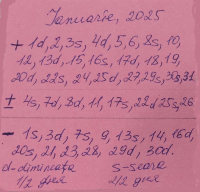 Ianuarie, 2025
+ 1d, 2, 3s, 4d, 5, 6, 8s, 10,
12, 13d, 15, 16s, 17d, 18, 19,
20d, 22s, 24, 25d, 27, 29s, 30s, 31
± 4s, 7d, 8d, 11, 17s, 22d, 25s, 26
− 1s, 3d, 7s, 9, 13s, 14, 16d,
20s, 21, 23, 28, 29d, 30d.
d-dimineața s-seara
1/2 дня 1/2 дня